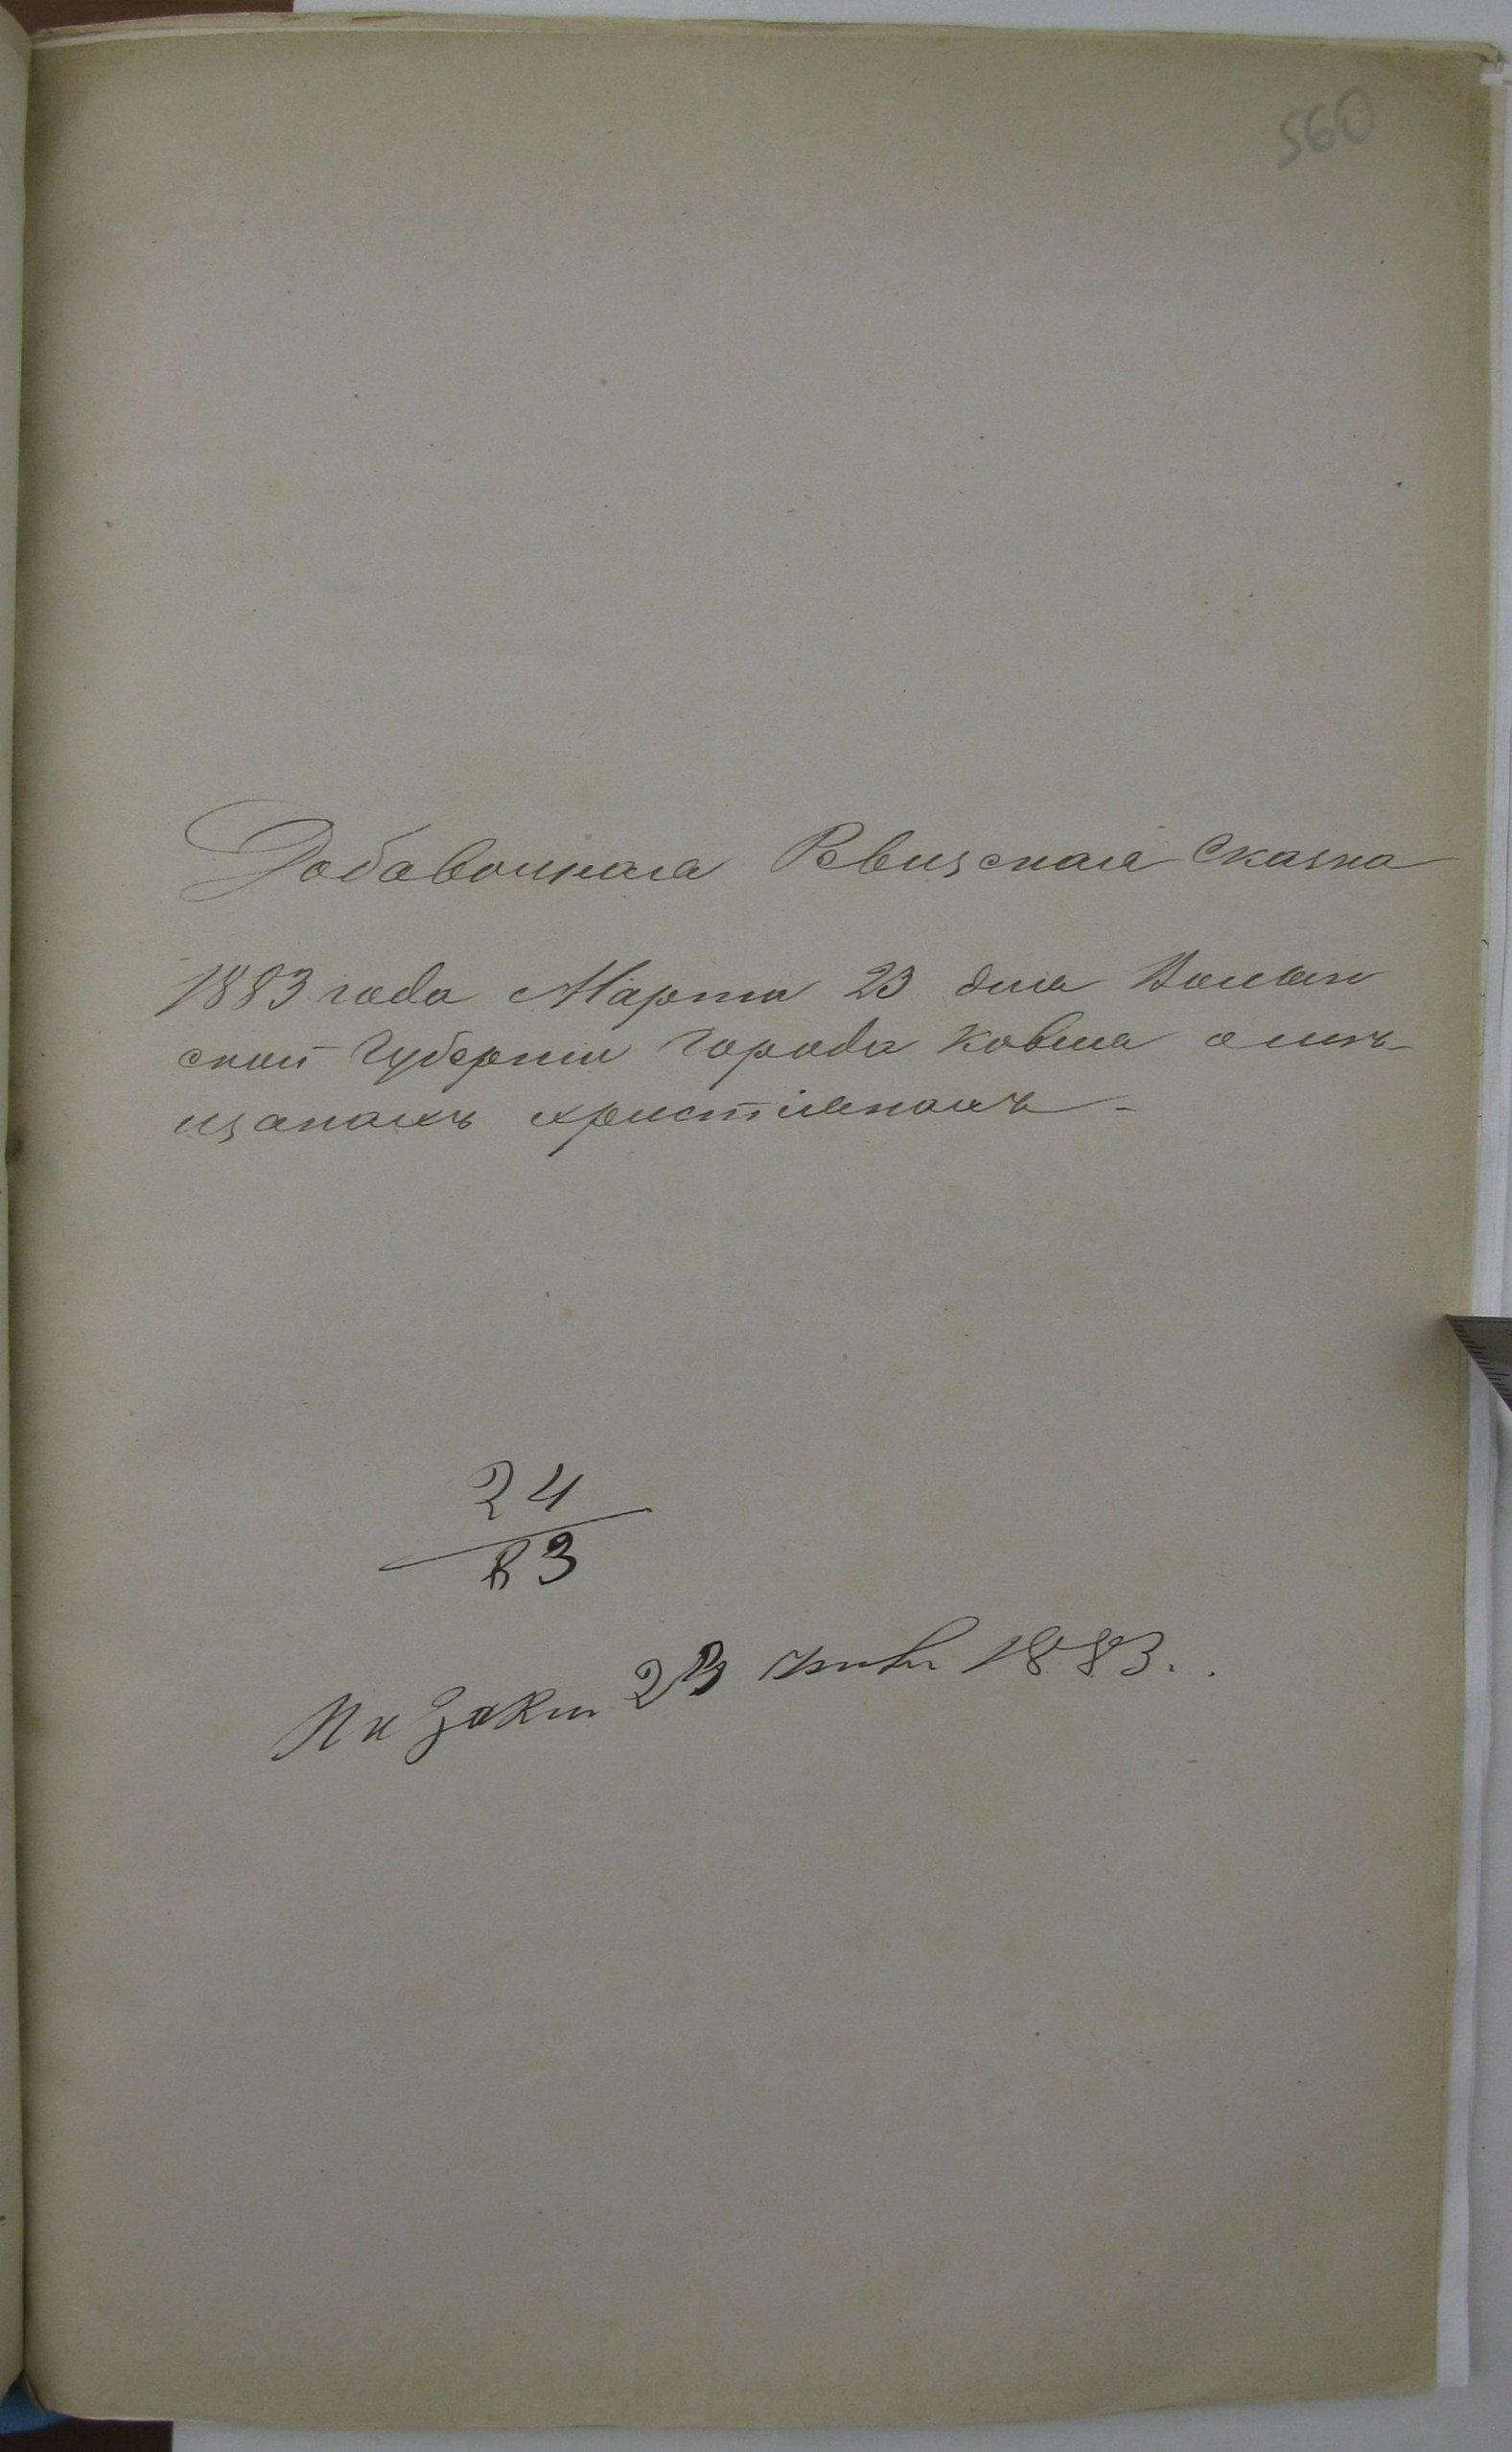 560
Добавочная Ревизская Сказка
1883 года Марта 23 дня Волын
ской Губернии Города Ковля о мѣ-
щанахъ христіянахъ
24
83
23 1883.